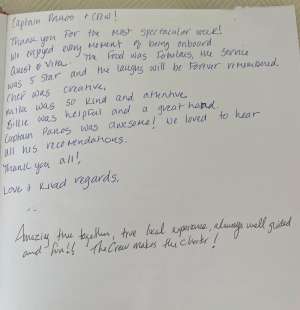 Captain Panos + Crew!
Thank you for the most spectacular week!
We enjoyed every moment of being onboard
Quest & Vita. The food was fabulous, the service
was 5 Star and the laughs will be forever remembered.
Chef was creative,
was so kind and attentive
Billie was helpful and a great hand.
Captain Panos was awesome! We loved to hear
all his recomendations.
Thank you all!
Love + Kind regards,
Amazing time together, true boat experience, always well guided
and fun!! The Crew makes the charter!